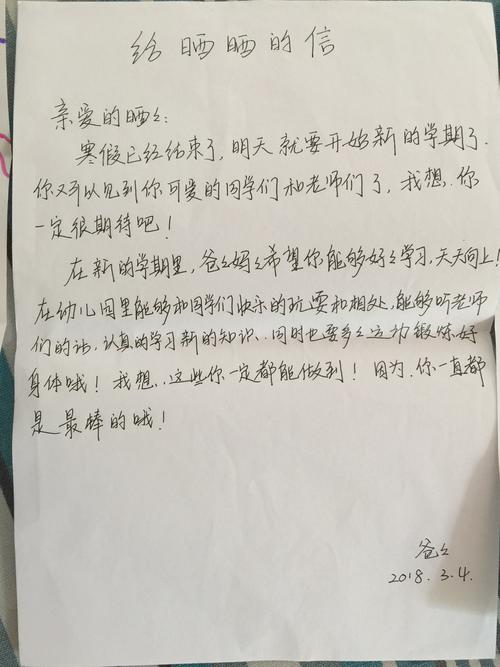 给晒晒的信
亲爱的晒々:
寒假已经结束了,明天就要开始新的学期了.
你又可以见到你可爱的同学们和老师们了,我想,你
一定很期待吧!
在新的学期里,爸々妈々希望你能够好々学习,天天向上!
在幼儿园里能够和同学们快乐的玩耍和相处,能够听老师
们的话,认真的学习新的知识、同时也要多々运动锻炼好
身体哦!我想,这些你一定都能做到!因为,你一直都
是最棒的哦!
爸々
2018.3.4.